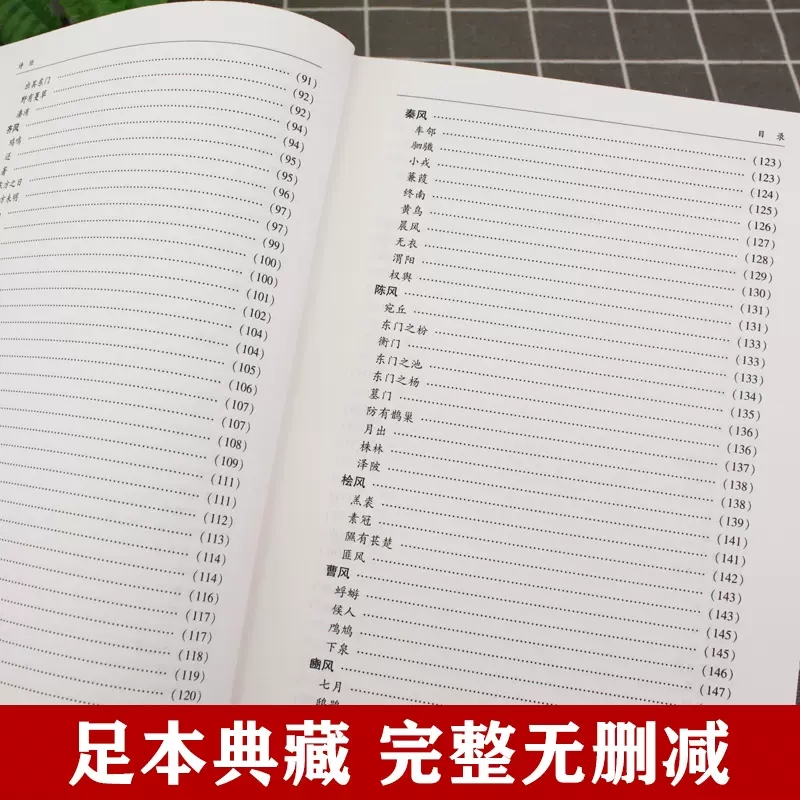 诗 经
出其东门 (91)
野有蔓草 (92)
溱洧 (92)
齐风 (94)
鸡鸣 (94)
还 (95)
著 (95)
东方之日 (96)
方未明 (97)
(97)
(99)
(100)
(100)
(101)
(102)
(104)
(104)
(105)
(106)
(107)
(107)
(108)
(109)
(111)
(111)
(112)
(113)
(114)
(114)
(116)
(117)
(117)
(118)
(119)
(120)
目 录
秦风 (123)
车邻 (123)
驷驖 (124)
小戎 (125)
蒹葭 (126)
终南 (127)
黄鸟 (128)
晨风 (129)
无衣 (130)
渭阳 (131)
权舆 (131)
陈风 (133)
宛丘 (133)
东门之枌 (133)
衡门 (134)
东门之池 (135)
东门之杨 (136)
墓门 (136)
防有鹊巢 (137)
月出 (138)
株林 (138)
泽陂 (139)
桧风 (141)
羔裘 (141)
素冠 (142)
隰有苌楚 (143)
匪风 (143)
曹风 (145)
蜉蝣 (145)
候人 (146)
鸤鸠 (147)
下泉
豳风
七月
足本典藏 完整无删减